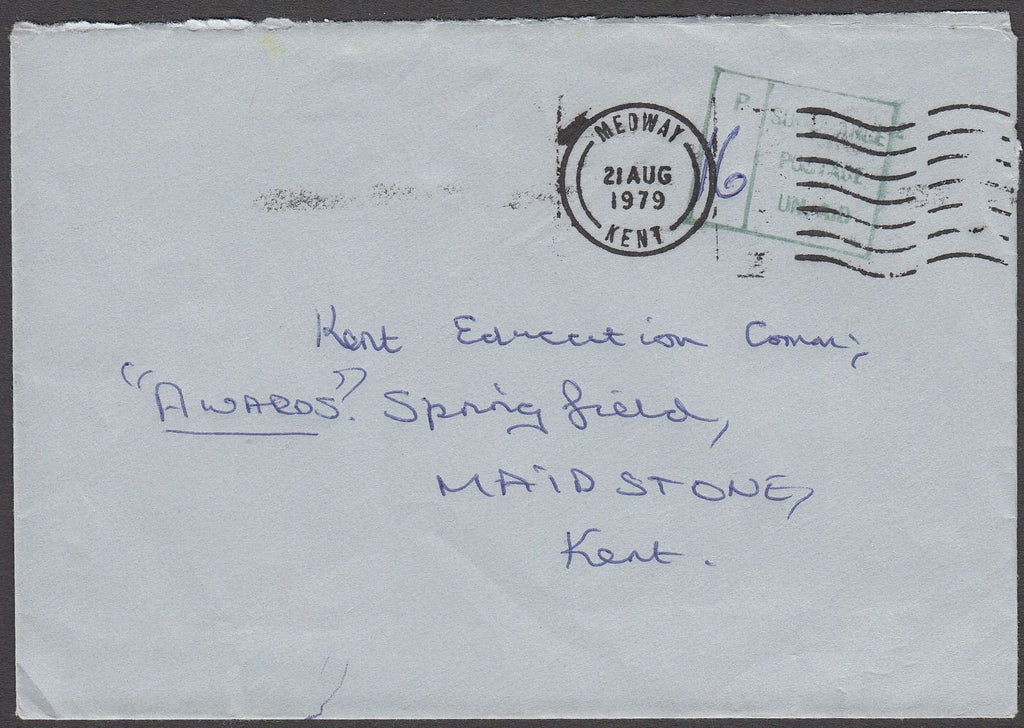 MEDWAY
21 AUG
1979
KENT
P
16
SURCHARGE
POSTAGE
UNPAID
Kent Education Comm;
"AWARDS". Springfield,
MAIDSTONE,
Kent.